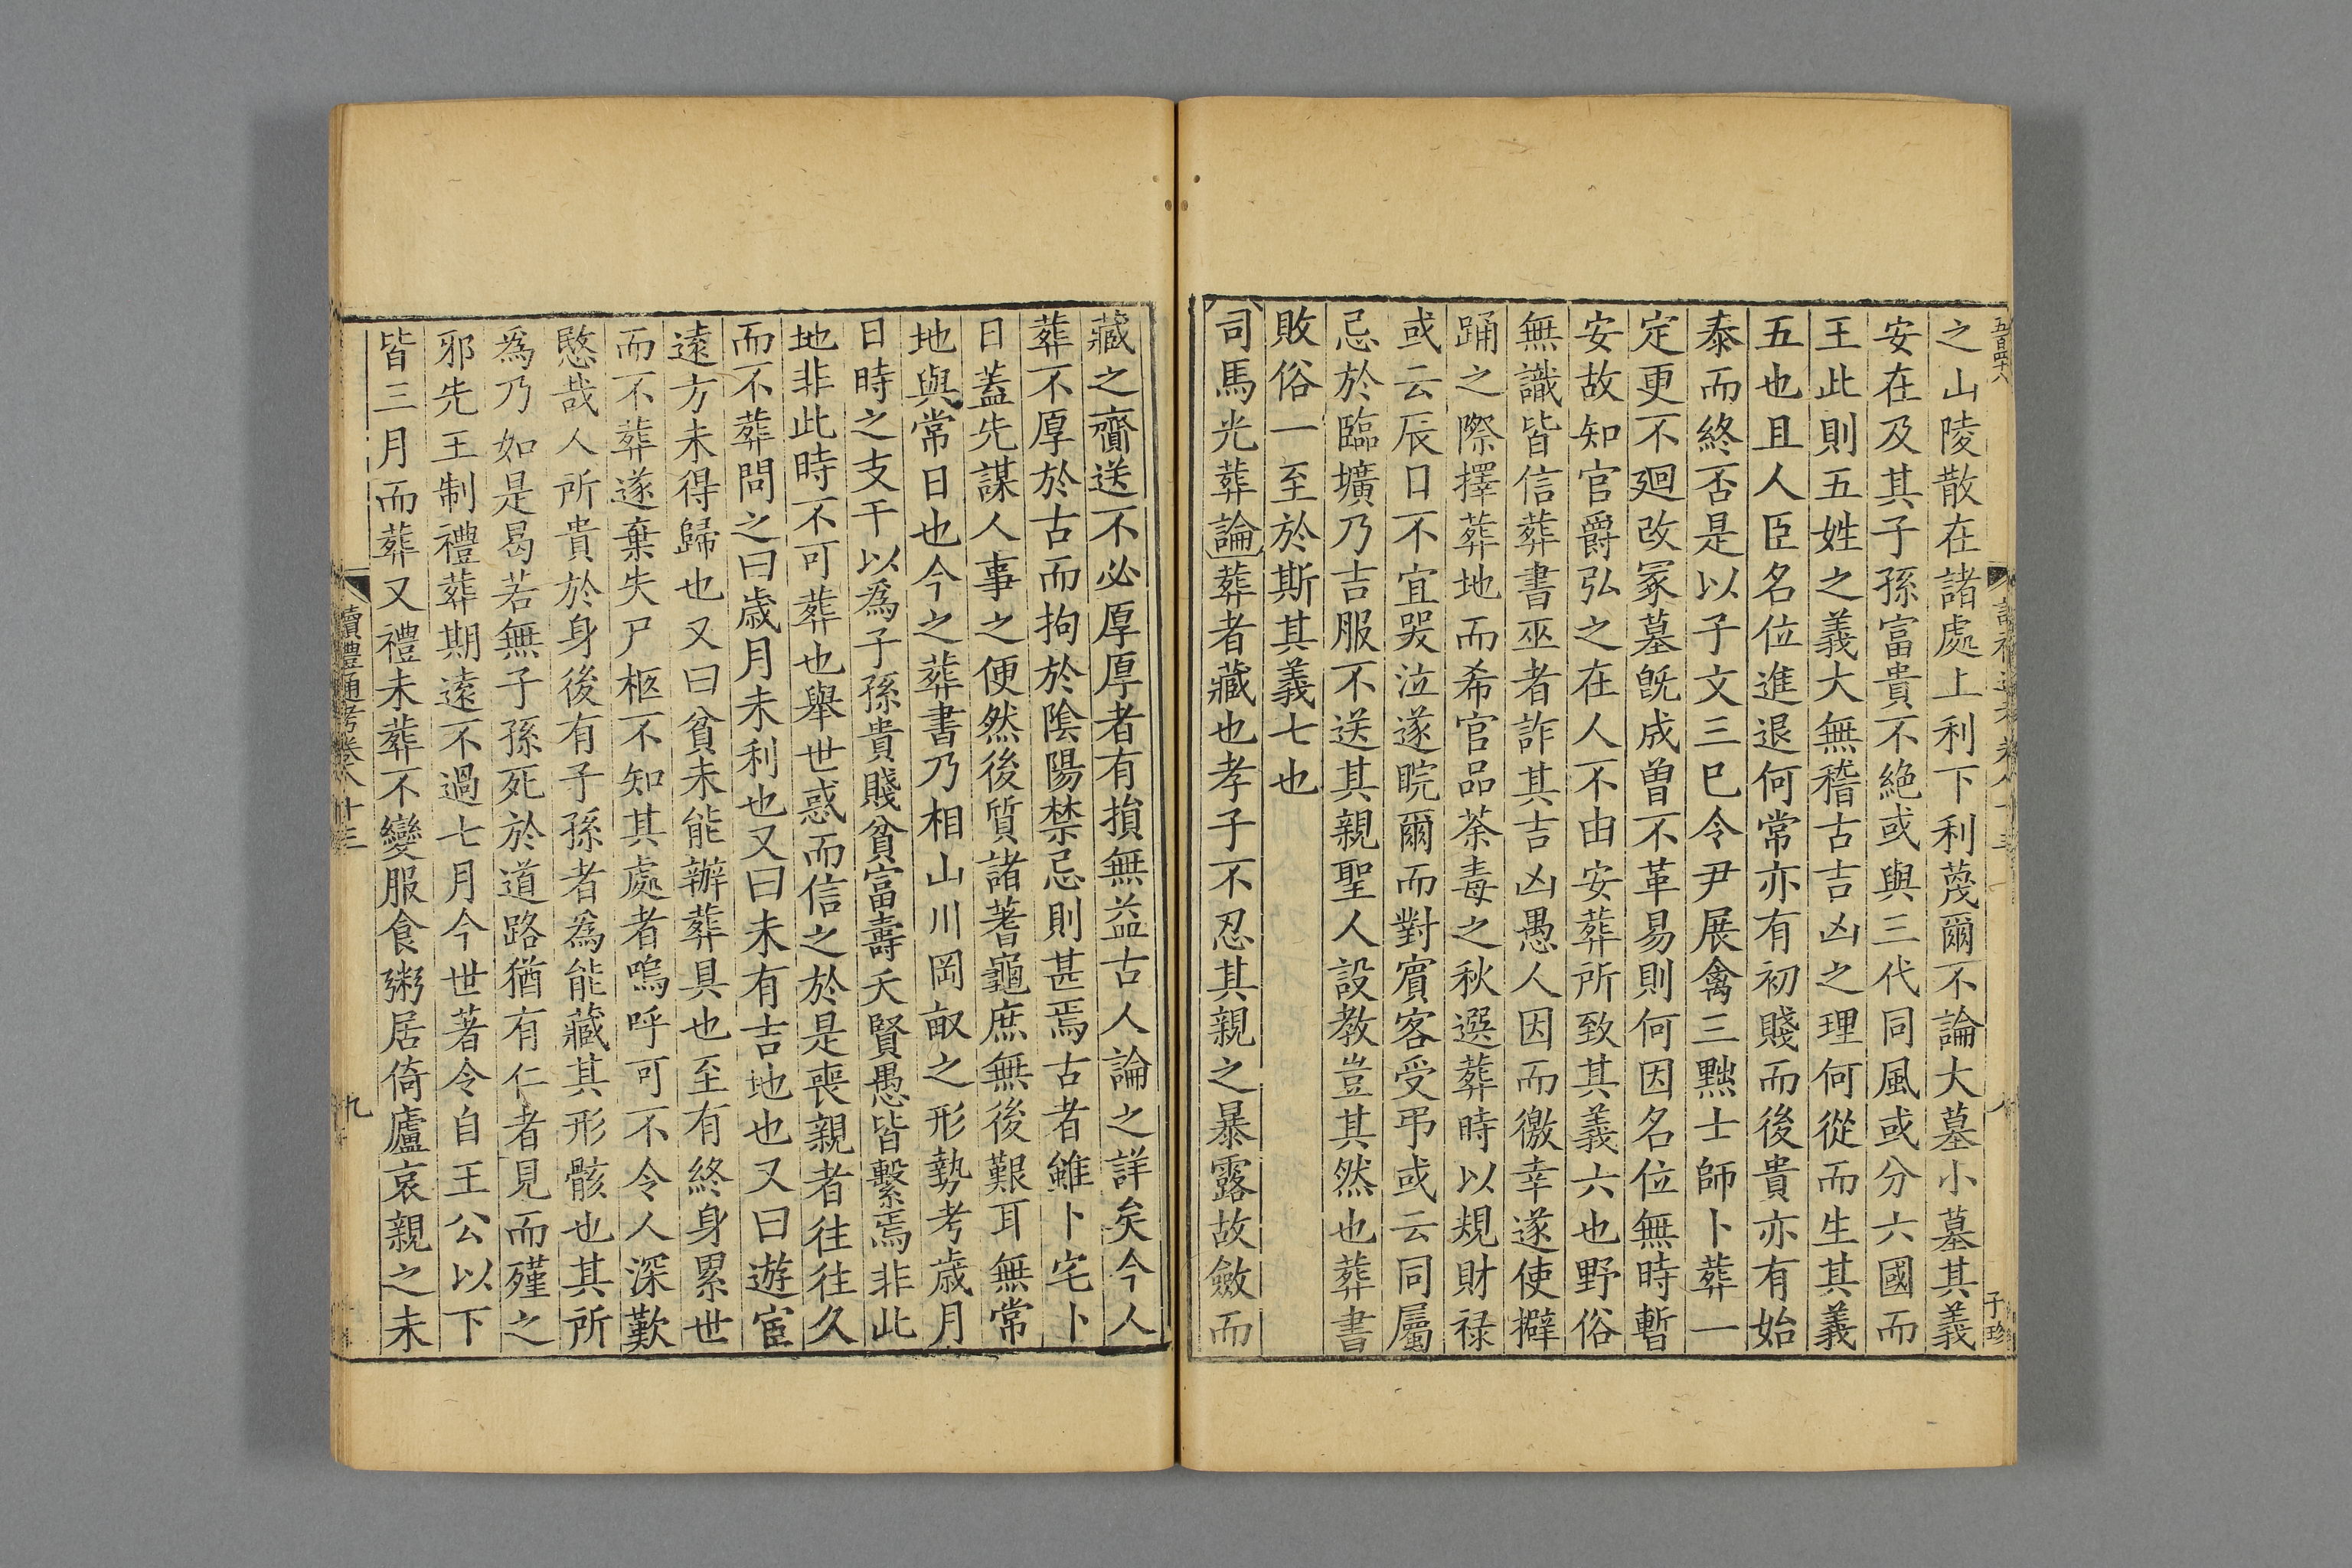 五百四十六
之山陵散在諸處上利下利蔑爾不論大墓小墓其義
安在及其子孫富貴不絶或與三代同風或分六國而
王此則五姓之義大無稽古吉凶之理何從而生其義
五也且人臣名位進退何常亦有初賤而後貴亦有始
泰而終否是以子文三巳令尹展禽三黜士師卜葬一
定更不廻改冢墓旣成曽不革易則何因名位無時暫
安故知官爵弘之在人不由安葬所致其義六也野俗
無識皆信葬書巫者詐其吉凶愚人因而徼幸遂使擗
踊之際擇葬地而希官品荼毒之秋選葬時以規財禄
或云辰日不宜哭泣遂睆爾而對賓客受弔或云同屬
忌於臨壙乃吉服不送其親聖人設教豈其然也葬書
敗俗一至於斯其義七也
司馬光葬論葬者藏也孝子不忍其親之暴露故斂而
子珍
藏之齎送不必厚厚者有損無益古人論之詳矣今人
葬不厚於古而拘於陰陽禁忌則甚焉古者雖卜宅卜
日蓋先謀人事之便然後質諸蓍龜庶無後艱耳無常
地與常日也今之葬書乃相山川岡畝之形勢考歲月
日時之支干以爲子孫貴賤貧富壽夭賢愚皆繫焉非此
地非此時不可葬也舉世惑而信之於是喪親者往往久
而不葬問之曰歲月未利也又曰未有吉地也又曰遊宦
遠方未得歸也又曰貧未能辦葬具也至有終身累世
而不葬遂棄失尸柩不知其處者嗚呼可不令人深歎
愍哉人所貴於身後有子孫者爲能藏其形骸也其所
爲乃如是曷若無子孫死於道路猶有仁者見而殣之
邪先王制禮葬期遠不過七月今世著令自王公以下
皆三月而葬又禮未葬不變服食粥居倚廬哀親之未
讀禮通考卷八十三
九